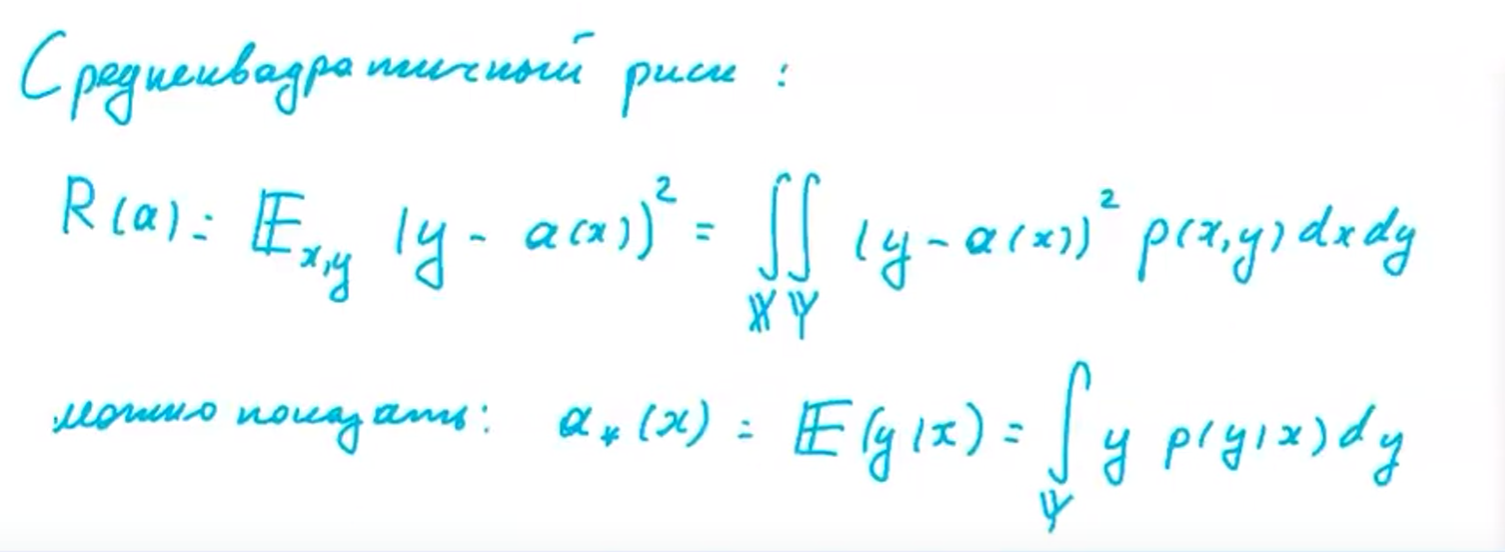 Среднеквадратичный риск:
R(a) = 𝔼_{x,y} (y - a(x))² = ∫∫_{𝕏 𝕐} (y - a(x))² p(x,y) dx dy
можно показать: a_*(x) = 𝔼(y|x) = ∫_𝕐 y p(y|x) dy